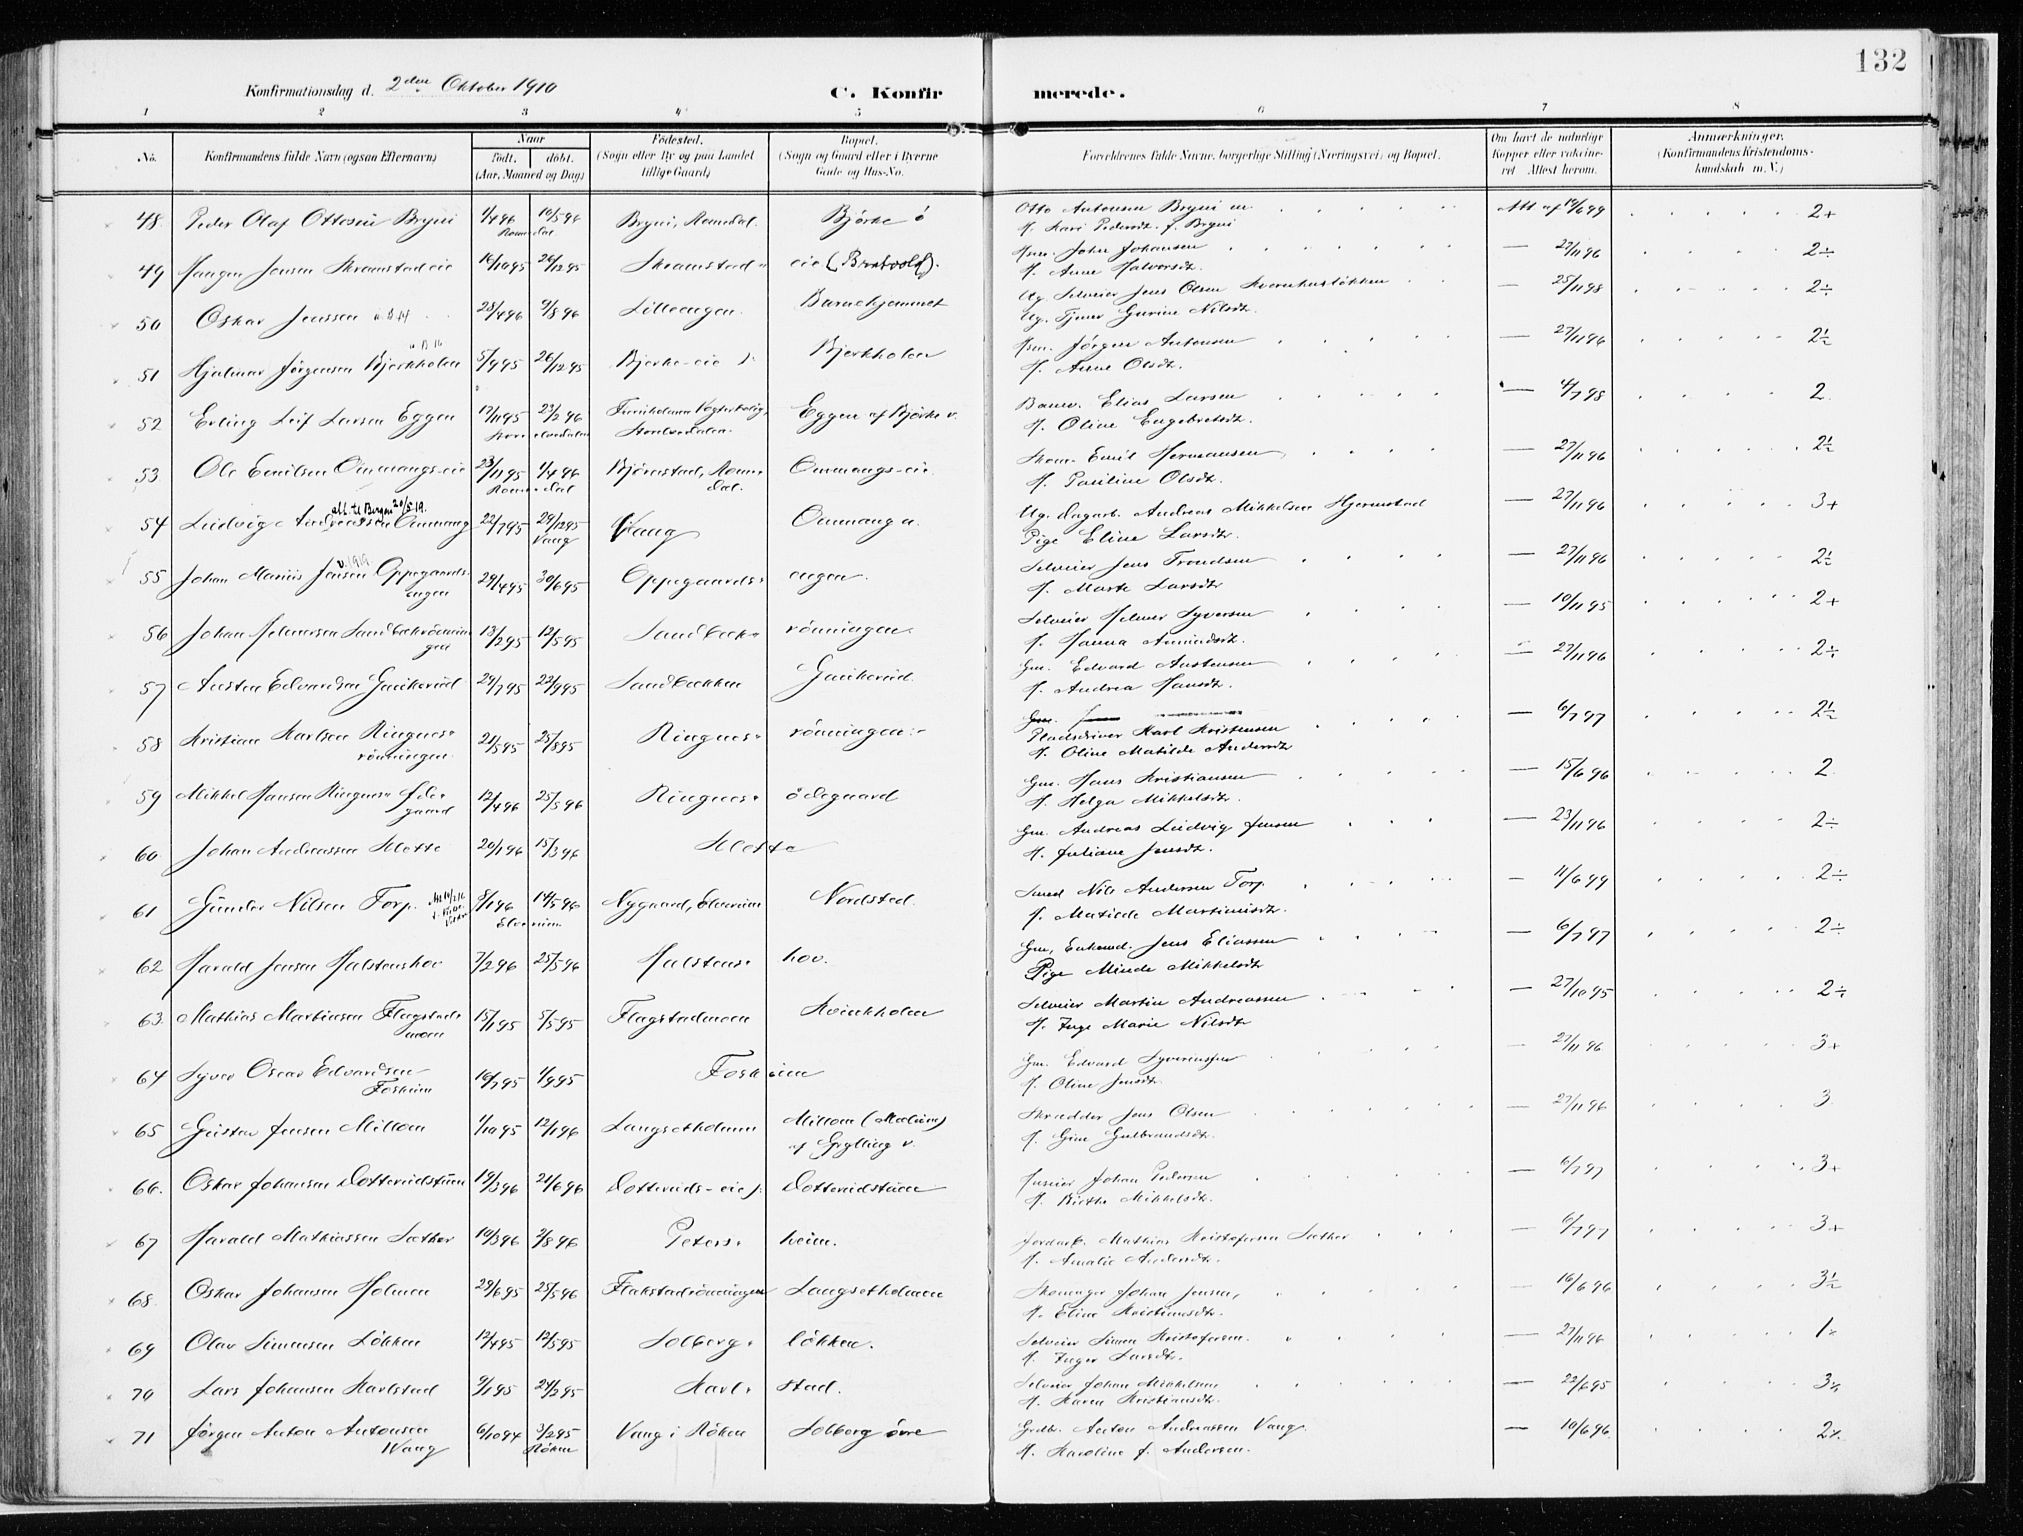 132
Konfirmationsdag d. 2den Oktober 1910
C. Konfirmerede.
1 2 3 4 5 6 7 8
No. Konfirmandens fulde Navn (ogsaa Efternavn) Naar født, døbt. (Aar, Maaned og Dag) Fødested. (Sogn eller By og paa Landet tillige Gaard) Bopæl. (Sogn og Gaard eller i Byerne Gade og Hus-No. Forældrenes fulde Navne, borgerlige Stilling (Næringsvei) og Bopæl. Om havt de naturlige Kopper eller vaccineret. Attest herom. Anmærkninger. (Konfirmandens Kristendomskundskab m. V.)
48. Peder Olaf Ottesen Bryni 1/4 96 10/5 96 Romedal Bryni, Romedal Bjørke ø Otto Antonsen Bryni Att af 19/6 99 2+
H. Kari Pedersdt. f. Bryni
49 Jensen Skramstadeie 16/10 95 26/12 95 Skramstad- eie John Johansen — 27/11 96 2÷
H. Anne Halvorsdt.
50 Oskar Jenssen 28/4 96 9/8 96 Lilleengen Barnehjemmet Ug. Selveier Jens Olsen Kvernhusløkken — 25/11 98 2÷
Ug. Tjener Gurine Nilsdt.
51 Hjalmar Jørgensen Bjerkholen 5/9 95 26/12 95 Bjerke-eie Bjerkholen Hsm. Jørgen Antonsen — 27/11 96 2½
H. Anne Olsdt.
52 Erling Leif Larsen Eggen 17/11 95 23/2 96 Storelvedalen Eggen af Bjørke v. Banev. Elias Larsen — 4/7 98 2
H. Oline Engebretsdt.
53 Ole Emilsen Ommangs-eie 23/11 95 1/4 96 Romedal Bjørnstad, Romedal. Ommangs-eie. Skom. Emil Hermansen — 27/11 96 2½
H. Pauline Olsdt.
54 Ludvig Andreassen Ommang att. til Bergen 20/5 19. 22/7 95 29/12 95 Vang Vang Ommang Ug. Dagarb. Andreas Mikkelsen Hjermstad — 27/11 96 3+
Pige Eline Larsdt.
55 Johan Marius Jensen Oppegaardsengen 29/4 95 30/6 95 Oppegaards- engen. Selveier Jens Trondsen — 27/11 96 2½
H. Marte Larsdt
56 Johan Helmersen Sandbækrønningen 13/2 95 12/5 95 Sandbæk- rønningen. Selveier Helmer Syversen — 10/11 95 2+
H. Hanna Amundsdt.
57 Austen Edvardsen Gunkerud 29/7 95 22/9 95 Sandbækken Gunkerud. Gm. Edvard Austensen — 27/11 96 2÷
H. Andrea Hansdt.
58 Kristian Karlsen Ringnesrønningen 21/5 95 25/8 95 Ringnes- rønningen Pladsdriver Karl Kristensen — 6/7 97 2½
H. Oline Matilde Andersdt
59 Mikkel Hansen Ringnes Ødegaard 12/4 96 25/5 96 Ringnes- ødegaard Gm. Hans Kristiansen — 15/6 96 2
H. Helga Mikkelsdt.
60 Johan Andreassen Klette 20/1 96 15/3 96 Klette Gm. Andreas Ludvig Jensen — 23/11 96 2÷
H. Juliane Jensdt.
61 Gunder Nilsen Torp. 8/1 96 14/5 96 Elverum. Nygaard, Elverum Nordstad. Smed Nils Andersen Torp — 11/6 99 2÷
H. Matilde Martinusdt.
62 Harald Jensen Halstenshov 7/2 96 25/5 96 Halstens- hov. Gm, Enkemd. Jens Eliassen — 6/7 97 2÷
Pige Minda Mikkelsdt
63. Mathias Martinsen Flagstadmoen 15/1 95 5/5 95 Flagstadmoen Kvinkholen Selveier Martin Andreassen — 27/10 95 2÷
H. Inge Marie Nilsdt
64 Syver Oscar Edvardsen Foskum 16/7 95 1/9 95 Foskum Gm. Edvard Syverinsen — 27/11 96 3+
H. Oline Jensdt.
65 Gustav Jensen Milloen 1/10 95 12/1 96 Langsetholmen Milloen af Grylling v. Skrædder Jens Olsen — 27/11 96 3
H. Gine Gulbrandsdt.
66. Oskar Johansen Dotterudstuen 19/3 96 21/6 96 Dotteruds-eie Dotterudstuen Inseier Johan Pedersen — 6/7 97 3+
H. Birthe Mikkelsdt.
67 Harald Mathiassen Sæther 10/3 96 2/8 96 Peters- heim. Jordarb. Mathias Kristofersen Sæther — 6/7 97 3+
H. Amalie Andersdt.
68. Oskar Johansen Holmen 29/6 95 25/5 96 Flakstadrønningen Langsetholmen Skomager Johan Jensen, — 16/6 96 3½
H. Eline Kristiansdt.
69 Olav Simensen Løkken 12/4 95 12/5 95 Solberg- løkken. Selveier Simen Kristofersen — 27/11 96
H. Inger Larsdt.
70 Lars Johansen Karlstad 9/1 95 24/2 95 Karl- stad. Selveier Johan Mikkelsen — 22/6 95
H. Karen Kristiansdt.
71 Jørgen Anton Antonsen Wang 6/10 94 3/2 95 Røken Vang i Røken Solberg øvre Grdbr. Anton Andreassen Vang. — 10/6 96
H. Karoline f. Andersen.